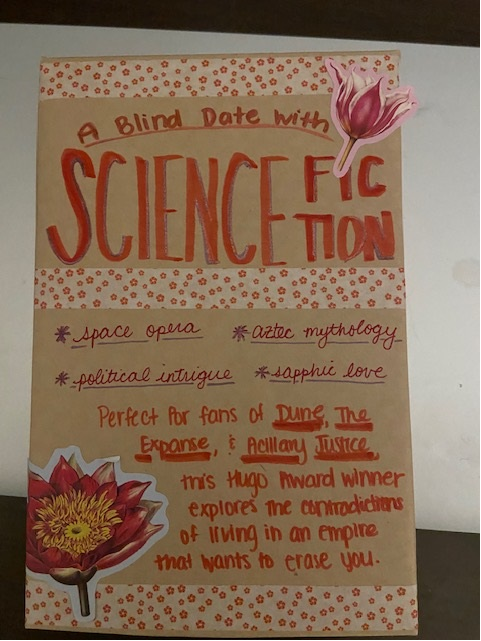 A Blind Date with
SCIENCE FIC
TION
* space opera * aztec mythology
* political intrigue * sapphic love
Perfect for fans of Dune, The
Expanse, & Acillary Justice.
this Hugo Award winner
explores the contradictions
of living in an empire
that wants to erase you.